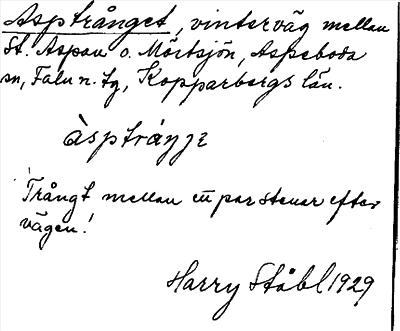 Asptrånget, vinterväg mellan
St. Aspan o. Mörtsjön, Aspeboda
sn, Falu n. tg, Kopparbergs län.
àsptråŋʒɛ
'Trångt mellan ett par stenar efter
vägen.'
Harry Ståbl 1929